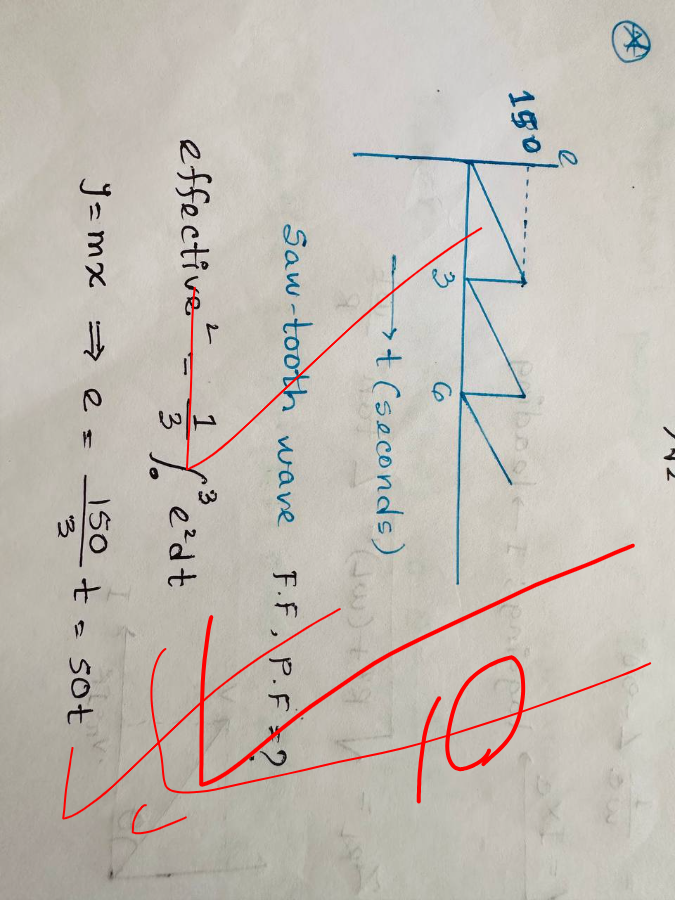 e
150
3 6
→ t (seconds)
10
Saw-tooth wave F.F, P.F = ?
effective² = 1/3 ∫₀³ e²dt
y = mx ⇒ e = 150/3 t = 50t